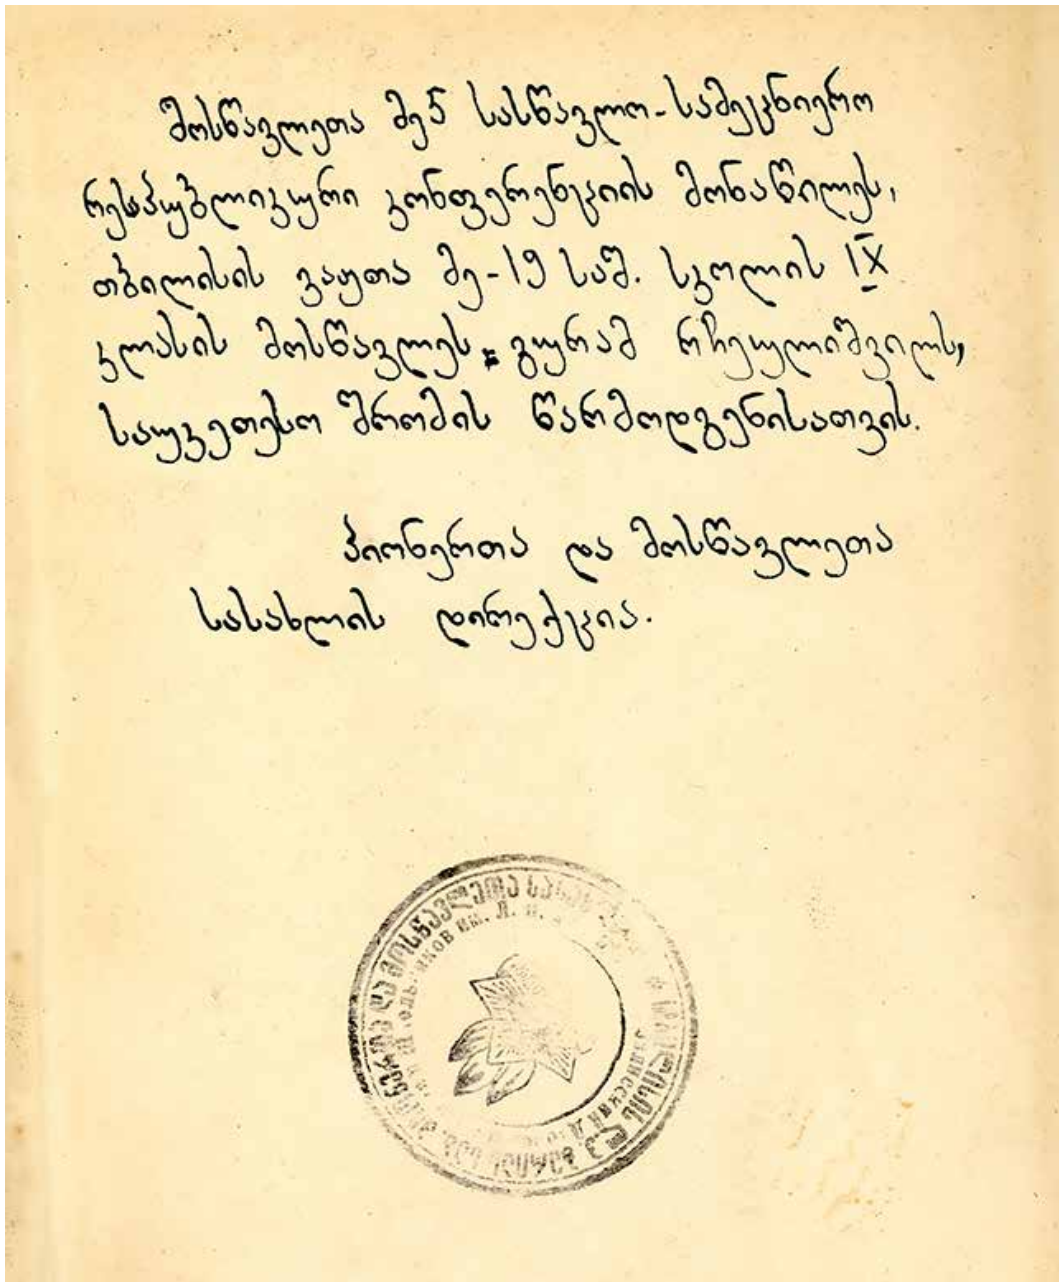 მოსწავლეთა მე5 სასწავლო-სამეცნიერო
რესპუბლიკური კონფერენციის მონაწილეს,
თბილისის ვაჟთა მე-19 საშ. სკოლის IX
კლასის მოსწავლეს გურამ რჩეულიშვილს,
საუკეთესო შრომის წარმოდგენისათვის.
პიონერთა და მოსწავლეთა
სასახლის დირექცია.
და მოსწავლეთა